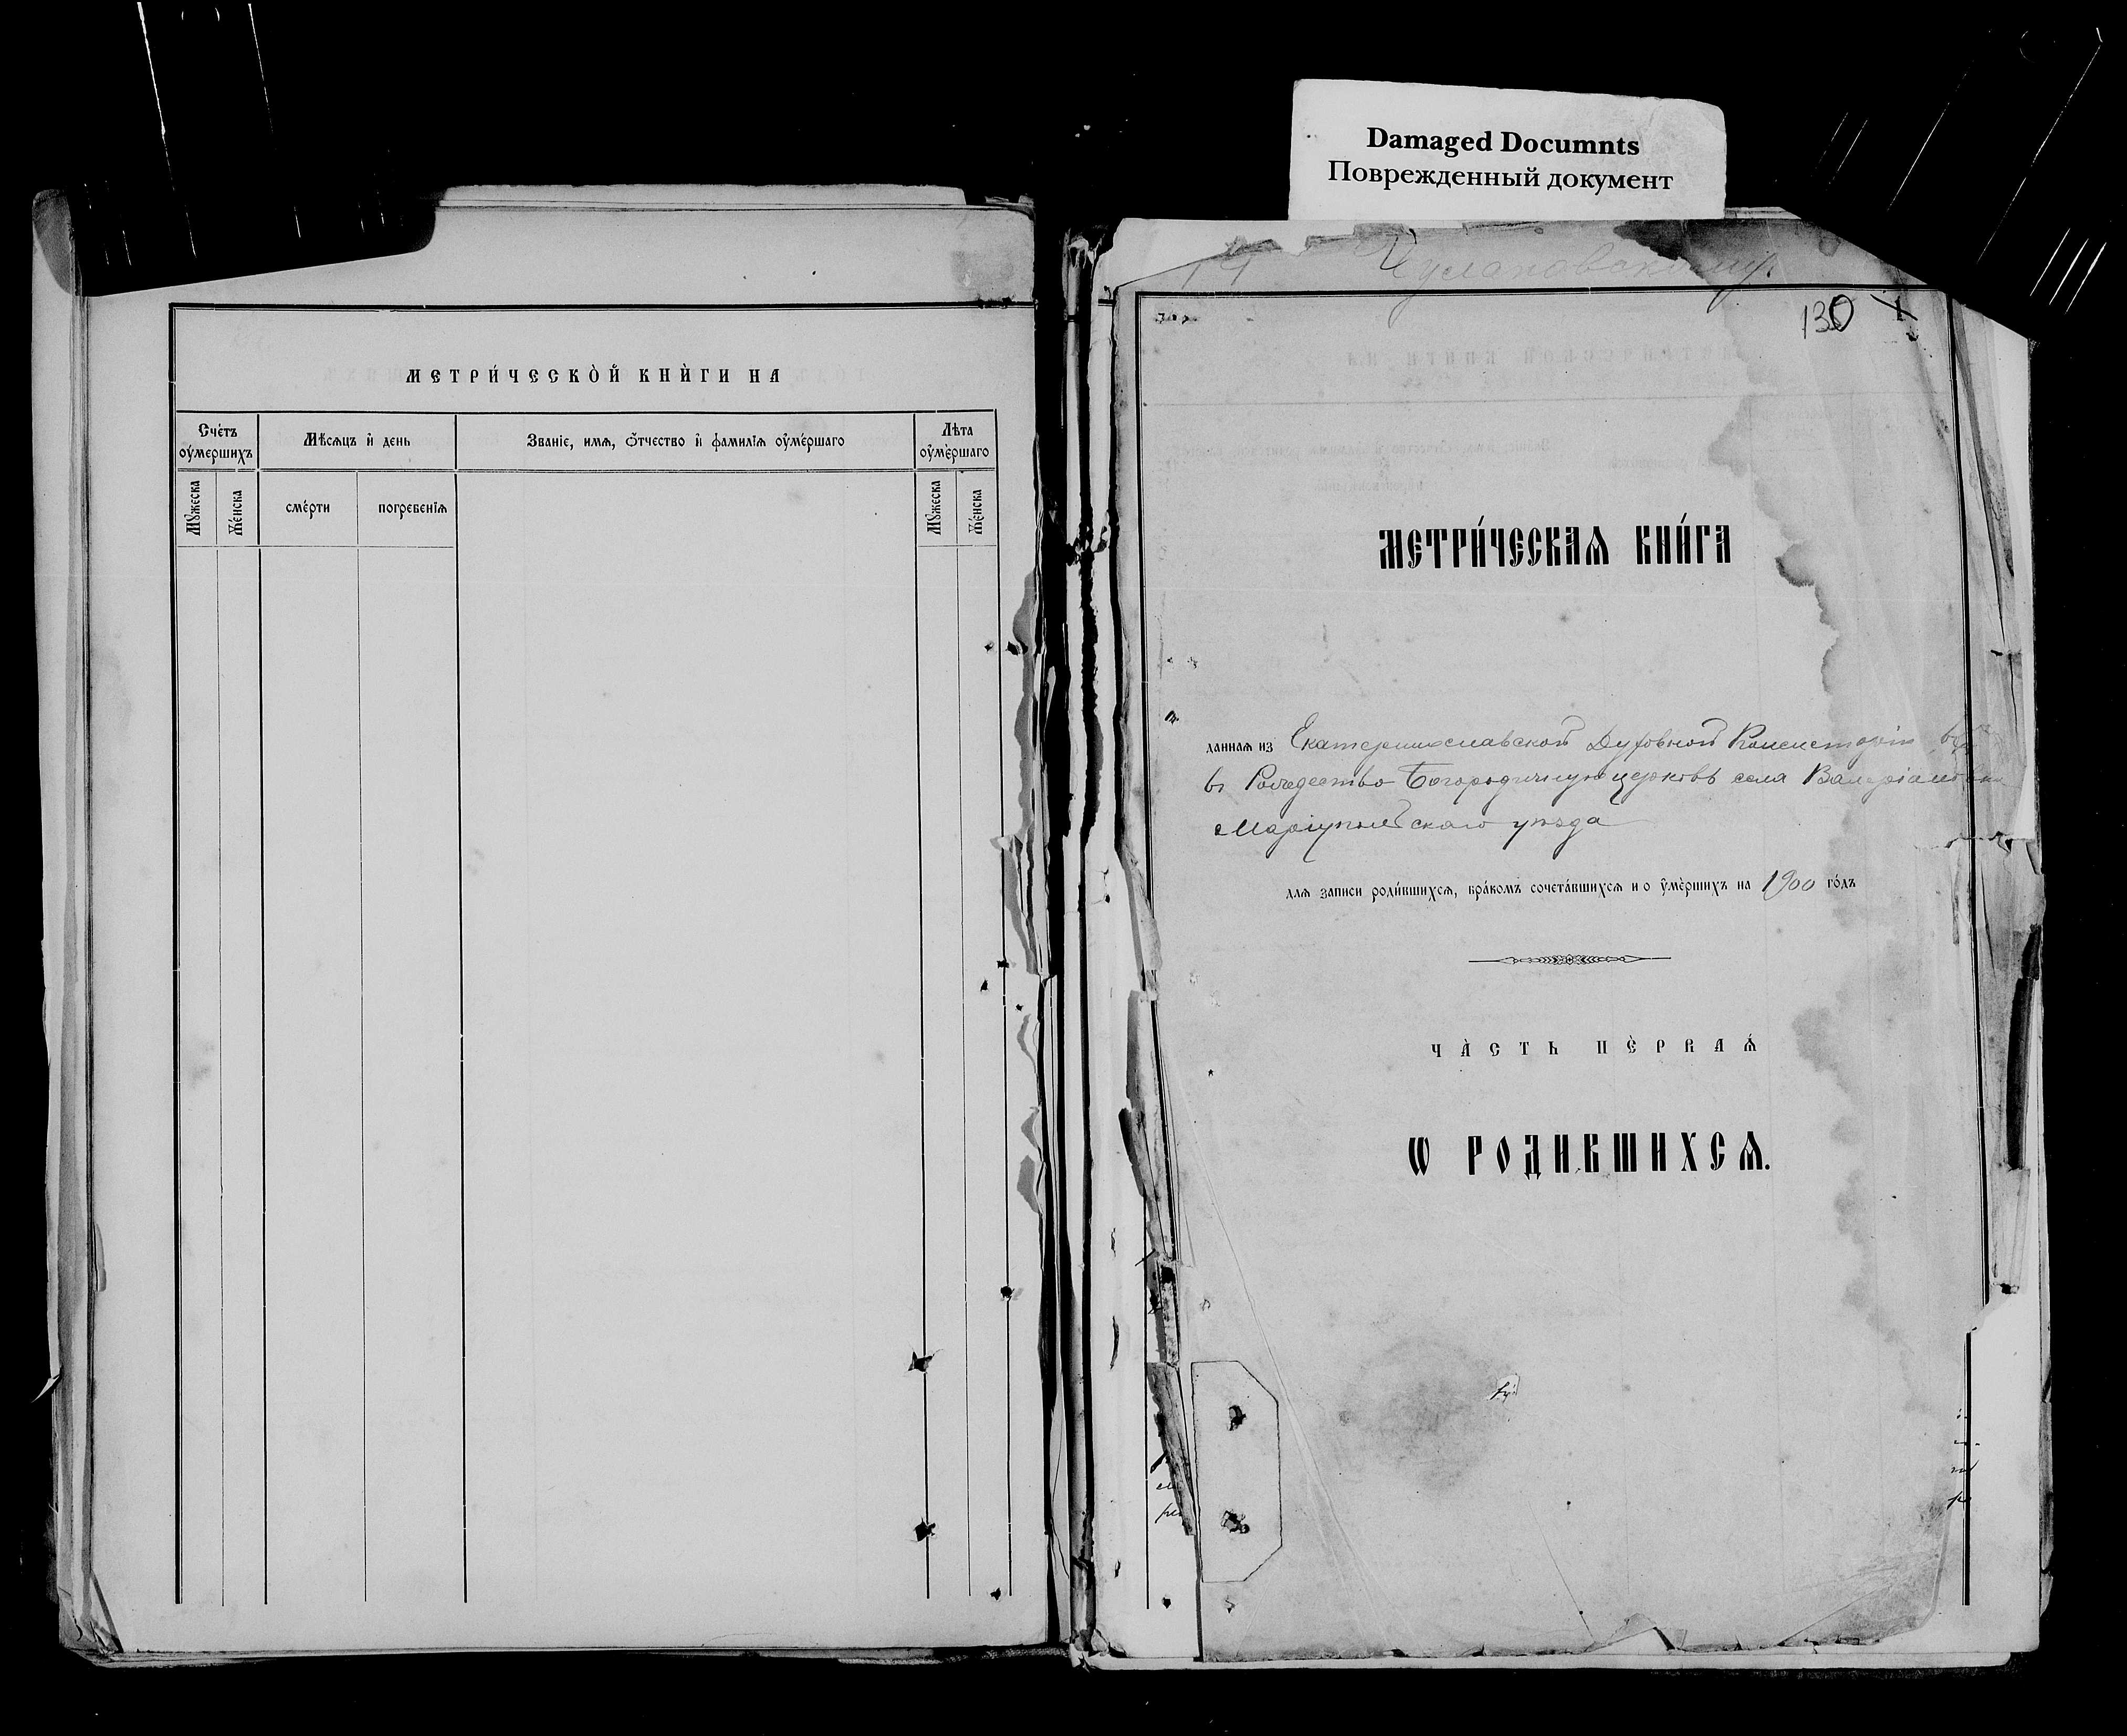 Damaged Documnts
Поврежденный документ
МЕТРИ́ЧЕСКО̀Й КНЍГИ НА
Сче́тъ ᲂу҆́мершихъ
Мѣсѧцъ и҆ де́нь
Званїе, имѧ, ѻ҆́тчество и҆ фамилїѧ ᲂу҆ме́ршаго
Лѣта ᲂу҆ме́ршаго
Мꙋ́жеска
Же́нска
сме́рти
погребенїѧ
Мꙋ́жеска
Же́нска
130
МЕТРИ́ЧЕСКАѦ КНИ́ГА
даннаѧ из Екатеринославской Духовной Консисторіи
въ Рождество Богородичную церковь села Валеріановки
Маріупольскаго уѣзда
длѧ записи роди́вшихсѧ, бра́комъ сочета́вшихсѧ и о ᲂу҆ме́ршихъ на 1900 го́дъ
ЧА̀СТЬ ПЀРВАѦ
Ѡ РОДИВШИХСѦ.